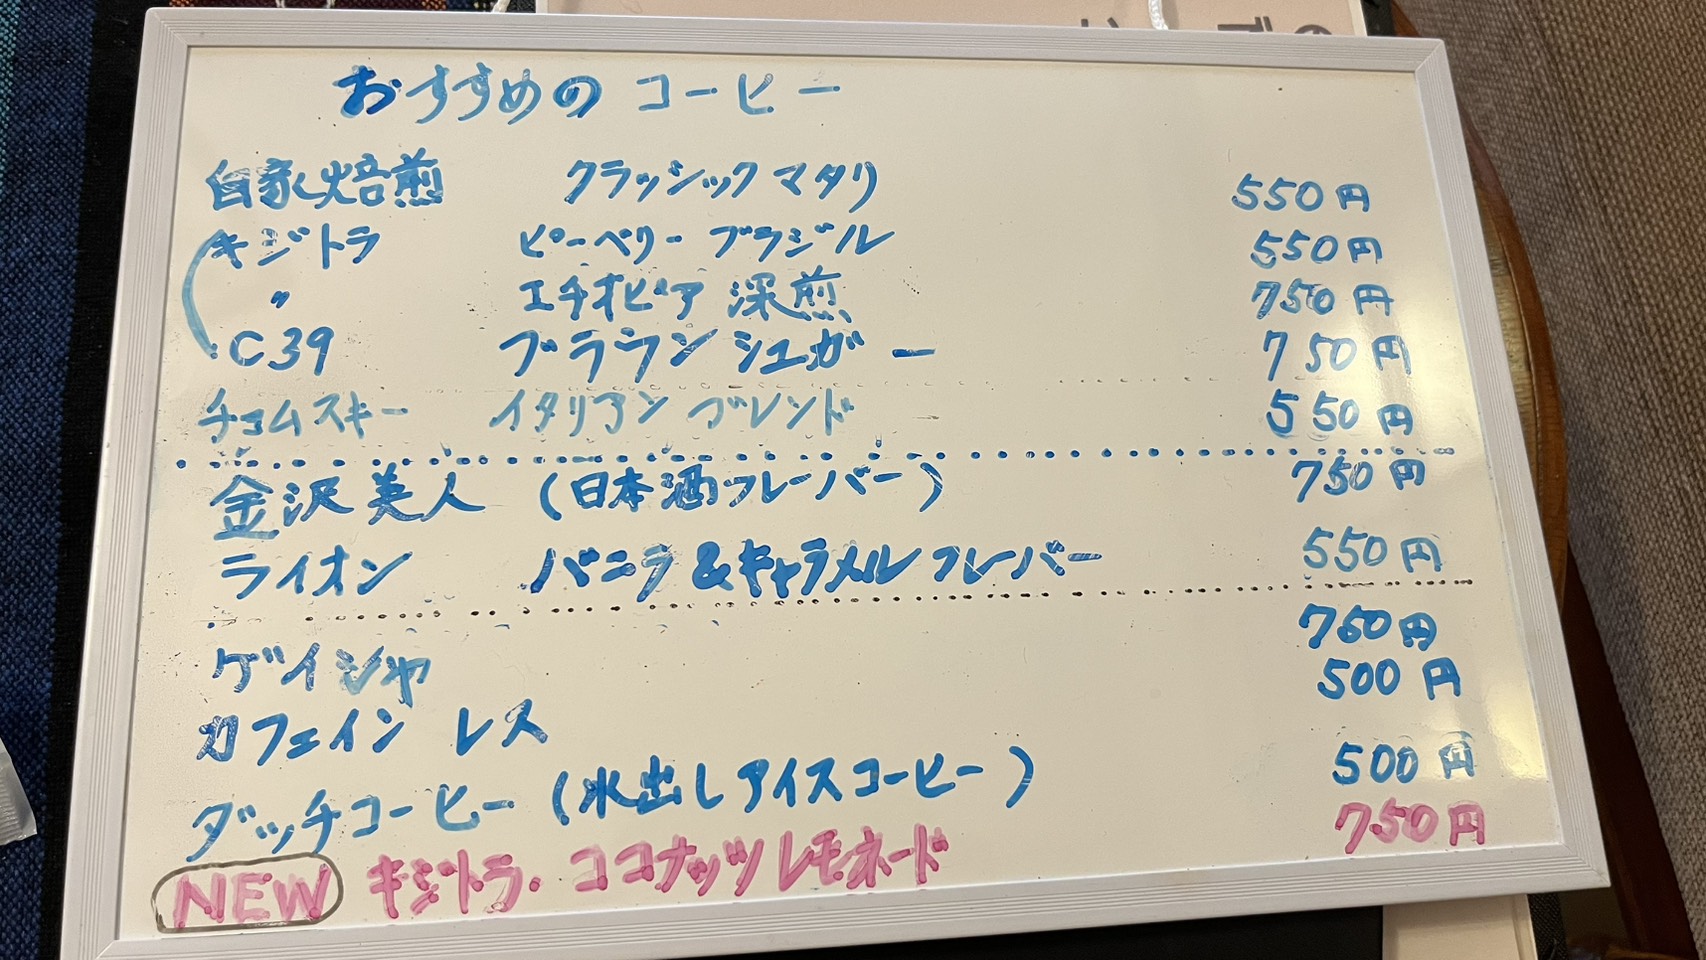 おすすめの コーヒー
自家焙煎 クラッシック マタリ 550円
キジトラ ピーベリー ブラジル 550円
〃 エチオピア 深煎 750円
C39 ブラウン シュガー 750円
チョムスキー イタリアン ブレンド 550円
金沢美人 (日本酒フレーバー) 750円
ライオン バニラ&キャラメル フレーバー 550円
ゲイシャ 750円
カフェイン レス 500円
ダッチコーヒー (水出しアイスコーヒー) 500円
NEW キジトラ・ココナッツ レモネード 750円